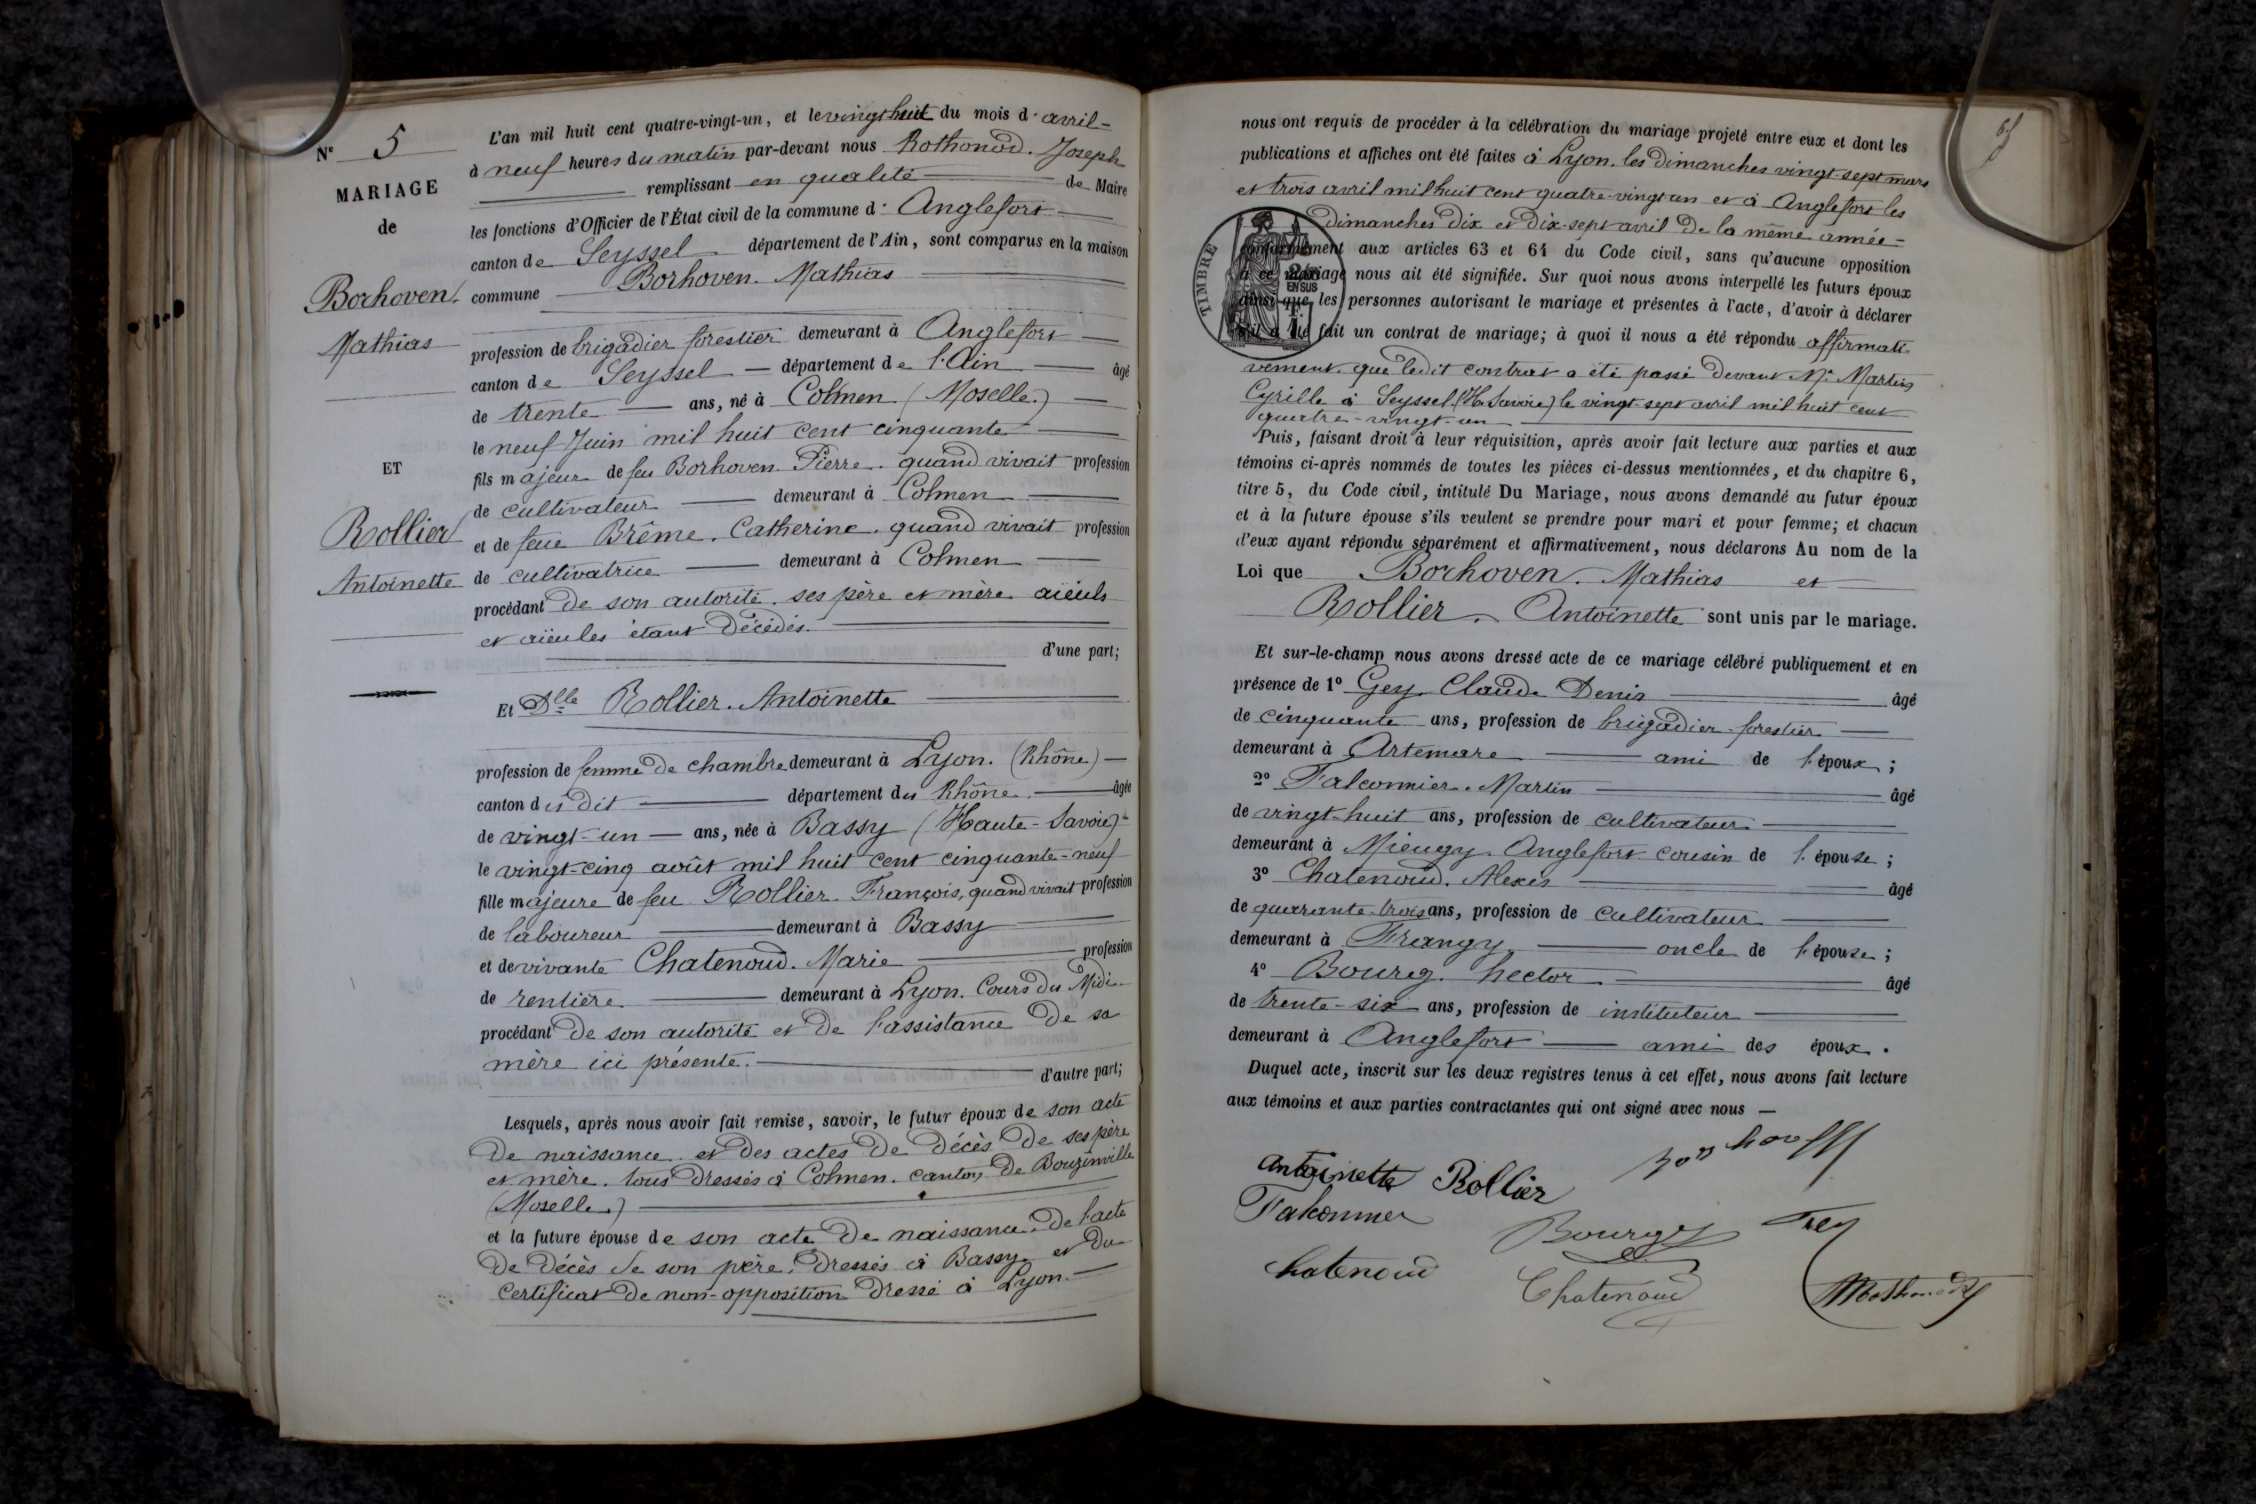 L'an mil huit cent quatre-vingt-un, et le vingt huit du mois d'avril
N° 5
à neuf heures du matin par-devant nous Rothonod. Joseph
MARIAGE
remplissant en qualité de Maire
de
les fonctions d'Officier de l'État civil de la commune d' Anglefort
canton de Seyssel département de l'Ain, sont comparus en la maison
Borhoven.
commune Borhoven. Mathias
Mathias
profession de brigadier forestier demeurant à Anglefort
canton de Seyssel département de l'Ain âgé
de trente ans, né à Colmen (Moselle.)
le neuf Juin mil huit cent cinquante
ET
fils majeur de feu Borhoven Pierre. quand vivait profession
de cultivateur demeurant à Colmen
Rollier
et de feue Brême. Catherine. quand vivait profession
Antoinette
de cultivatrice demeurant à Colmen
procédant de son autorité. ses père et mère aïeuls
et aïeules étant décédés.
d'une part;
Et Dlle Rollier. Antoinette
profession de femme de chambre demeurant à Lyon. (Rhône)
canton du dit département du Rhône. âgée
de vingt-un ans, née à Bassy (Haute-Savoie)
le vingt-cinq août mil huit cent cinquante-neuf
fille majeure de feu Rollier. François, quand vivait profession
de laboureur demeurant à Bassy
et de vivante Chatenoud. Marie profession
de rentière demeurant à Lyon. Cours du Midi
procédant de son autorité et de l'assistance de sa
mère ici présente.
d'autre part;
Lesquels, après nous avoir fait remise, savoir, le futur époux de son acte
de naissance et des actes de décès de ses père
et mère. tous dressés à Colmen. canton de Bouzinville
(Moselle.)
et la future épouse de son acte de naissance. de l'acte
de décès de son père. dressés à Bassy et du
certificat de non-opposition dressé à Lyon.
nous ont requis de procéder à la célébration du mariage projeté entre eux et dont les
publications et affiches ont été faites à Lyon. les dimanches vingt-sept mars
et trois avril mil huit cent quatre-vingt-un et à Anglefort les
dimanches dix et dix-sept avril de la même année
TIMBRE
EN SUS
conformément aux articles 63 et 64 du Code civil, sans qu'aucune opposition
à ce mariage nous ait été signifiée. Sur quoi nous avons interpellé les futurs époux
ainsi que les personnes autorisant le mariage et présentes à l'acte, d'avoir à déclarer
s'il a été fait un contrat de mariage; à quoi il nous a été répondu affirmati-
vement. que ledit contrat a été passé devant Me Martin
Cyrille à Seyssel (Hte Savoie) le vingt-sept avril mil huit cent
quatre-vingt-un
Puis, faisant droit à leur réquisition, après avoir fait lecture aux parties et aux
témoins ci-après nommés de toutes les pièces ci-dessus mentionnées, et du chapitre 6,
titre 5, du Code civil, intitulé Du Mariage, nous avons demandé au futur époux
et à la future épouse s'ils veulent se prendre pour mari et pour femme; et chacun
d'eux ayant répondu séparément et affirmativement, nous déclarons Au nom de la
Loi que Borhoven. Mathias et
Rollier. Antoinette sont unis par le mariage.
Et sur-le-champ nous avons dressé acte de ce mariage célébré publiquement et en
présence de 1° Gey. Claude Denis âgé
de cinquante ans, profession de brigadier-forestier
demeurant à Artemare ami de l'époux;
2° Falconnier. Martin âgé
de vingt-huit ans, profession de cultivateur
demeurant à Mieugy. Anglefort cousin de l'épouse;
3° Chatenoud. Alexis âgé
de quarante-trois ans, profession de cultivateur
demeurant à Frangy. oncle de l'épouse;
4° Bourg. hector âgé
de trente-six ans, profession de instituteur
demeurant à Anglefort ami des époux.
Duquel acte, inscrit sur les deux registres tenus à cet effet, nous avons fait lecture
aux témoins et aux parties contractantes qui ont signé avec nous
Antoinette Rollier
Falconnier
Bourg Gey
Chatenoud
Chatenoud